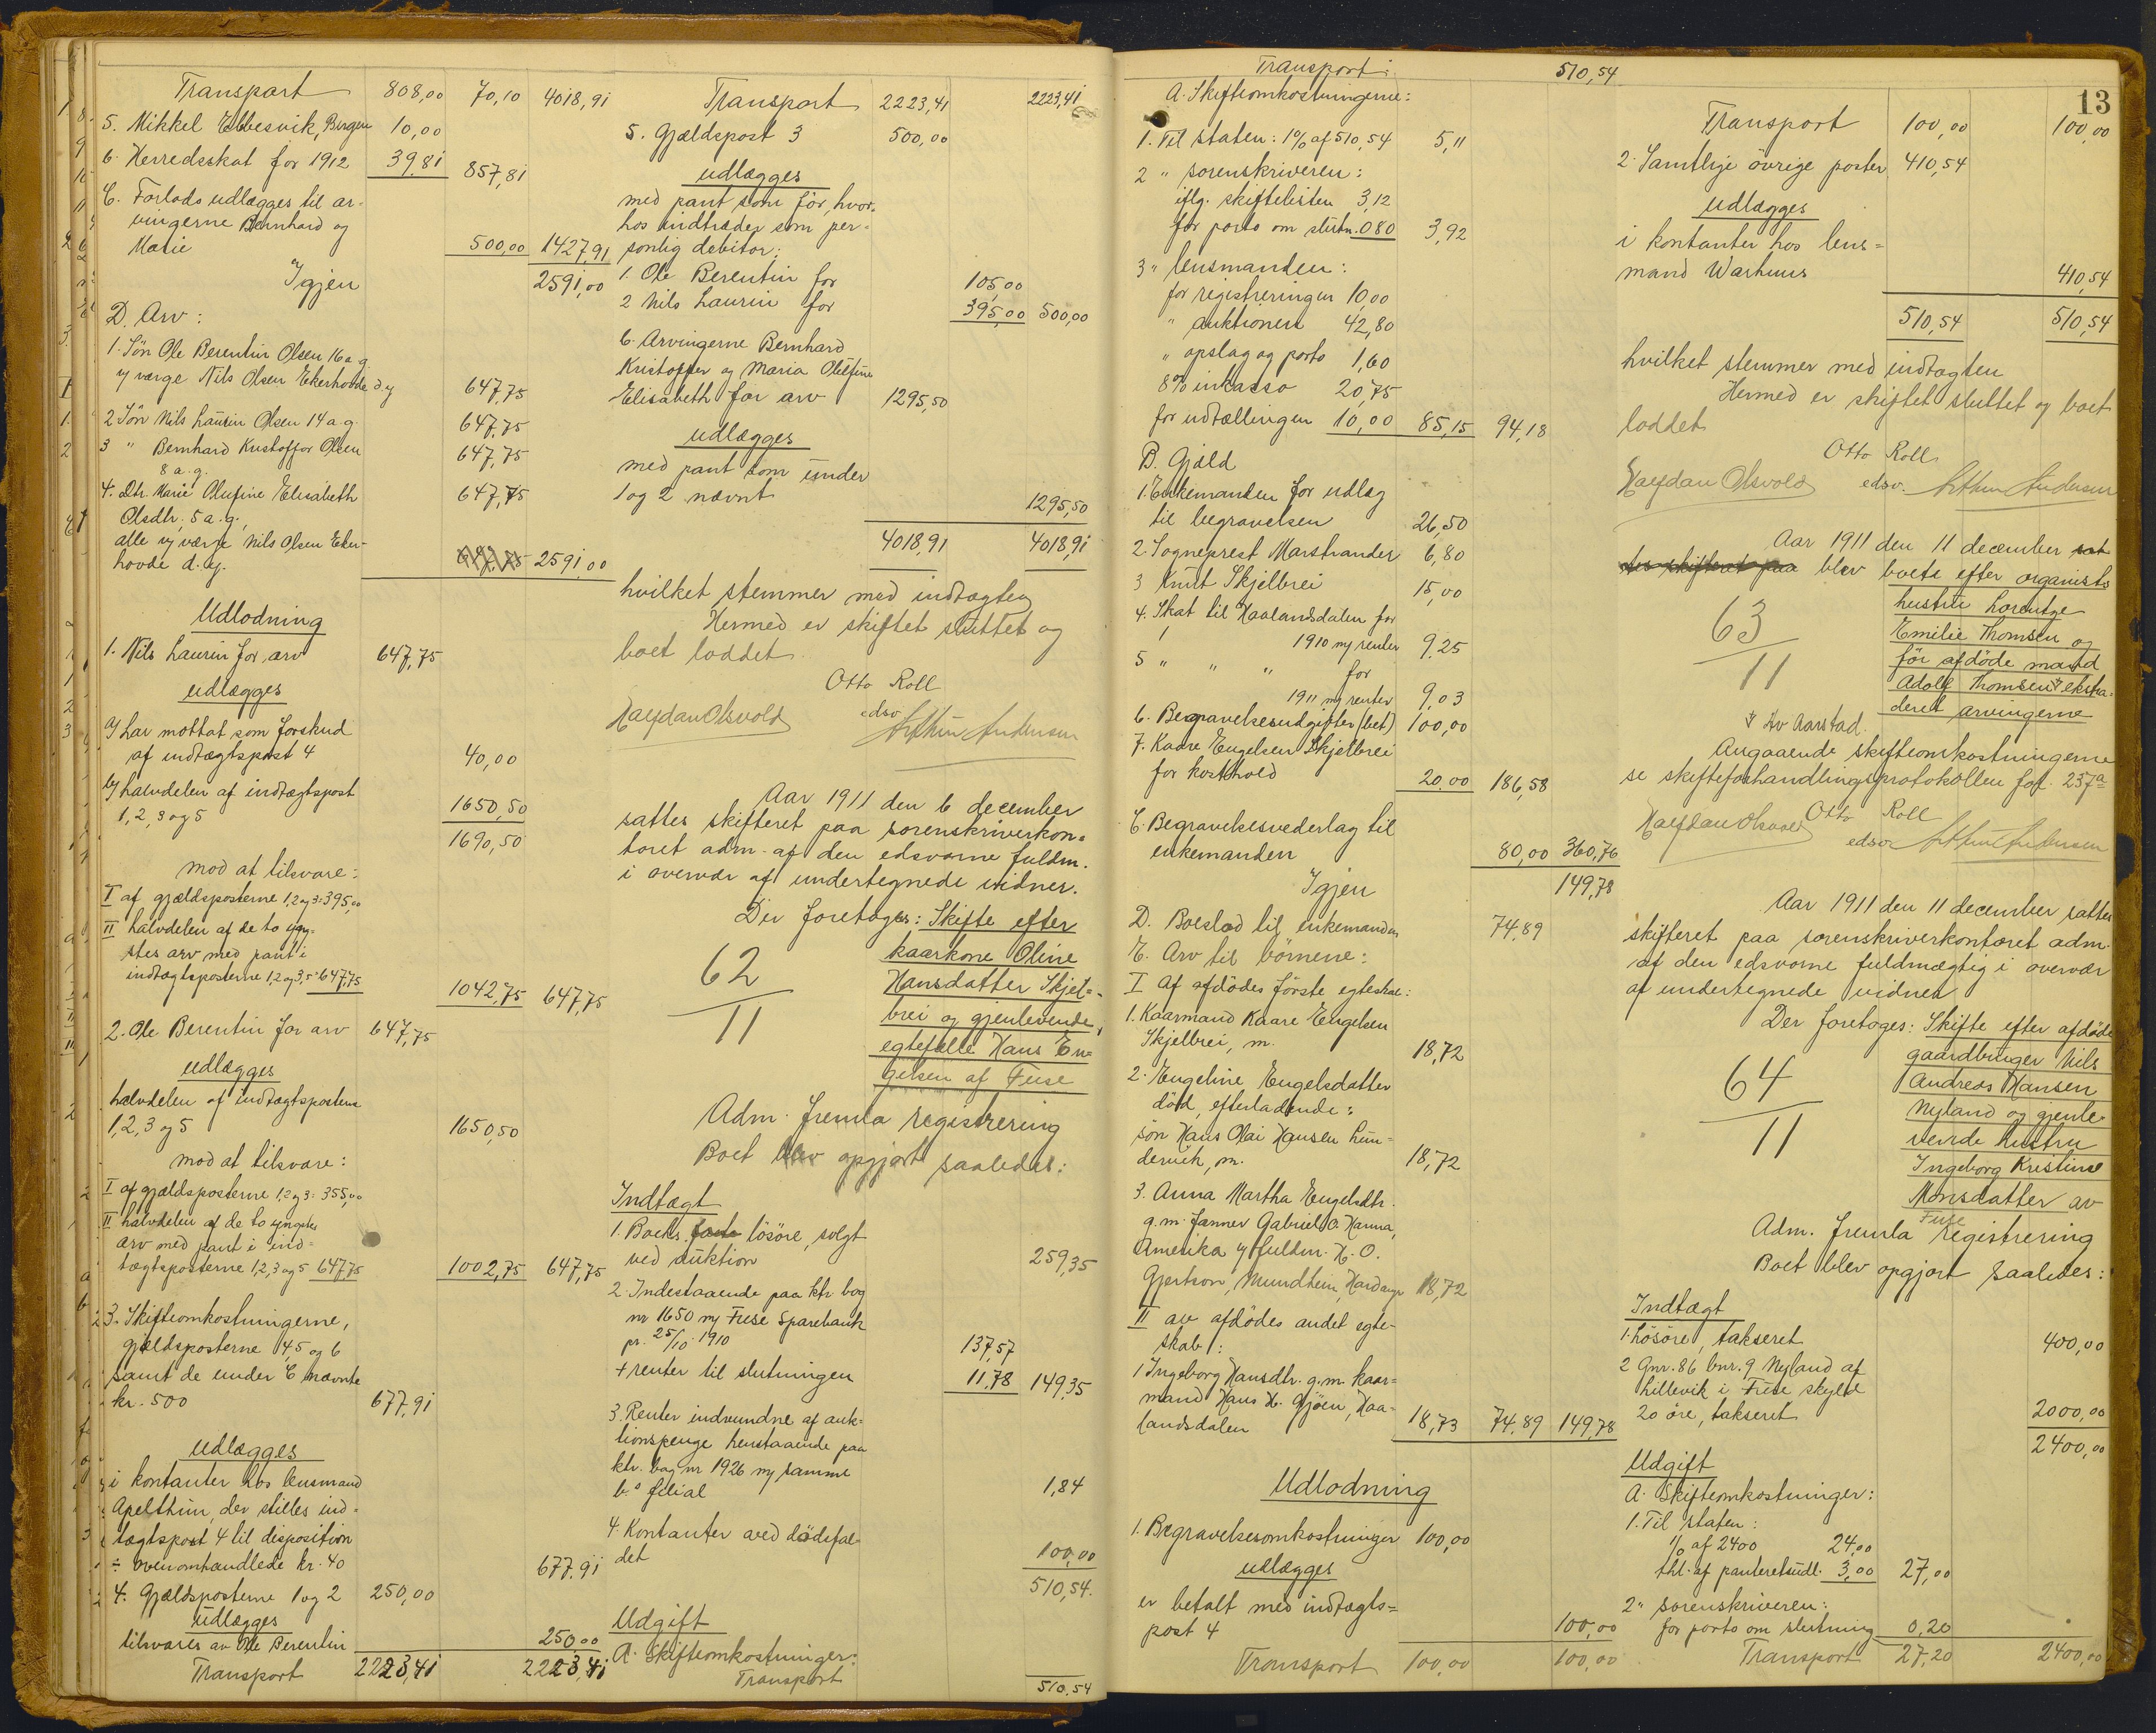 Transport 808,00 70,10 4018,91
5. Mikkel Ebbesvik, Bergen 10,00
6. Herredsskat for 1912 39,81 857,81
C. Forlods udlægges til ar-
vingerne Bernhard og
Marie 500,00 1427,91
Igjen 2591,00
D. Arv:
1. Sön Ole Berentin Olsen 16 a. g.
v/ værge Nils Olsen Ekerhovde d.y 647,75
2 Sön Nils Laurin Olsen 14 a. g. 647,75
3 " Bernhard Kristoffer Olsen 647,75
8 a. g.
4. Dtr. Marie Olufine Elisabeth 647,75
Olsdtr, 5 a. g.,
alle v/ værge Nils Olsen Eker-
hovde d. y. 647,75 2591,00
Udlodning
1. Nils Laurin for arv 647,75
udlægges
a/ har mottat som forskud
af indtægtspost 4 40,00
b/ halvdelen af indtægtspost
1, 2, 3 og 5 1650,50
1690,50
mod at tilsvare:
I af gjældsposterne 1, 2 og 3: 395,00
II halvdelen af de to yng-
stes arv med pant i
indtægtsposterne 1, 2 og 3, 5: 647,75
1042,75 647,75
2. Ole Berentin for arv 647,75
udlægges
halvdelen af indtægtsposterne
1, 2, 3 og 5 1650,50
mod at tilsvare:
I af gjældsposterne 1, 2 og 3: 355,00
II halvdelen af de to yngstes
arv med pant i ind-
tægtsposterne 1, 2, 3 og 5 647,75 1002,75 647,75
3. Skifteomkostningerne,
gjældsposterne 4, 5 og 6
samt de under C nævnte
kr. 500 677,91
udlægges
i kontanter hos lensmand
Apelthun, der stilles ind-
tægtspost 4 til disposition
÷ ovenomhandlede kr. 40 677,91
4. Gjældsposterne 1 og 2 250,00
udlægges
tilsvares av Ole Berentin 250,00
Transport 2223,41 2223,41
Transport 2223,41 2223,41
5. Gjældspost 3 500,00
udlægges
med pant som för, hvor-
hos indtræder som per-
sonlig debitor:
1. Ole Berentin for 105,00
2 Nils Laurin for 395,00 500,00
6. Arvingerne Bernhard
Kristoffer og Maria Olufine
Elisabeth for arv 1295,50
udlægges
med pant som under
1 og 2 nævnt 1295,50
4018,91 4018,91
hvilket stemmer med indtægten
Hermed er skiftet sluttet og
boet loddet.
Otto Roll
edsv.
Halfdan Olsvold Arthur Andersen
Aar 1911 den 6 december
sattes skifteret paa sorenskriverkon-
toret adm. af den edsvorne fuldm.
i overvær af undertegnede vidner.
Der foretoges: Skifte efter
62
11
kaarkone Oline
Hansdatter Skjel-
brei og gjenlevende
egtefælle Hans En-
gelsen af Fuse
Adm. fremla registrering
Boet blev opgjort saaledes:
Indtægt
1. Boets faste lösöre, solgt
ved auktion 259,35
2. Indestaaende paa ktr. bog
nr 1650 m/ Fuse Sparebank
pr. 25/10 1910 137,57
+ renter til slutningen 11,78 149,35
3. Renter indvundne af auk-
tionspenge henstaaende paa
ktr. bog nr 1926 m/ samme
b.s filial 1,84
4. Kontanter ved dödsfal-
det 100,00
510,54.
Udgift
A. Skifteomkostninger:
Transport 510,54
Transport: 510,54
A. Skifteomkostningerne:
1. Til staten: 1% af 510,54 5,11
2 " sorenskriveren:
iflg. skiftelisten 3,12
for porto om slutn. 0,80 3,92
3 " lensmanden:
for registreringen 10,00
" auktionen 42,80
" opslag og porto 1,60
8% inkasso 20,75
for udtællingen 10,00 85,15 94,18
B. Gjæld
1. Enkemanden for udlæg
til begravelsen 26,50
2. Sogneprest Marstrander 6,80
3 Knut Skjelbrei 15,00
4. Skat til Haalandsdalen for
1910 m/ renter 9,25
5 " " " for
1911 m/ renter 9,03
6. Begravelsesudgifter (bet) 100,00
7. Kaare Engelsen Skjelbrei
for kosthold 20,00 186,58
C. Begravelsesvederlag til
enkemanden 80,00 360,76
Igjen 149,78
D. Boeslod til enkemanden 74,89
E. Arv til börnene:
I Af afdödes förste egteskab:
1. Kaarmand Kaare Engelsen
Skjelbrei, m. 18,72
2. Engeline Engelsdatter
död, efterladende:
sön Hans Olai Hansen Hun-
dervik, m. 18,72
3. Anna Martha Engelsdtr.
g. m. farmer Gabriel O. Hanna,
Amerika v/ fuldm. H. O.
Gjertson, Mundheim, Hardanger 18,72
II av afdödes andet egte-
skab:
1 Ingeborg Hansdtr. g. m. kaar-
mand Hans H. Gjöen, Haa-
landsdalen 18,73 74,89 149,78
Udlodning
1. Begravelsesomkostninger 100,00
udlægges
er betalt med indtægts-
post 4 100,00
Transport 100,00 100,00
13
Transport 100,00 100,00
2. Samtlige övrige poster 410,54
udlægges
i kontanter hos lens-
mand Warhuus 410,54
510,54 510,54
hvilket stemmer med indtægten
Hermed er skiftet sluttet og boet
loddet
Otto Roll
edsv.
Halfdan Olsvold Arthur Andersen
Aar 1911 den 11 december sat
tes skifteret paa blev boets efter organists
63
11
hustru Lorentze
Emilie Thomsen og
för afdöde mand
Adolf Thomsen ekstra-
deret arvingerne
av Aarstad.
Angaaende skifteomkostningerne
se skifteforhandlingsprotokollen fol. 237a
Otto Roll
edsv.
Halfdan Olsvold Arthur Andersen
Aar 1911 den 11 december sattes
skifteret paa sorenskriverkontoret adm.
af den edsvorne fuldmægtig i overvær
af undertegnede vidner
Der foretoges: Skifte efter afdöde
64
11
gaardbruger Nils
Andreas Hansen
Nyland og gjenle-
vende hustru
Ingeborg Kristine
Monsdatter av
Fuse
Adm. fremla registrering
Boet blev opgjort saaledes:
Indtægt
1. Lösöre, takseret 400,00
2 Gnr. 86 bnr. 9 Nyland af
Lillevik i Fuse skyld
20 öre, takseret 2000,00
2400,00
Udgift
A. Skifteomkostninger:
1. Til staten:
1% af 2400 24,00
thl. af panteretsudl. 3,00 27,00
2 " sorenskriveren:
for porto om slutning 0,20
Transport 27,20 2400,00